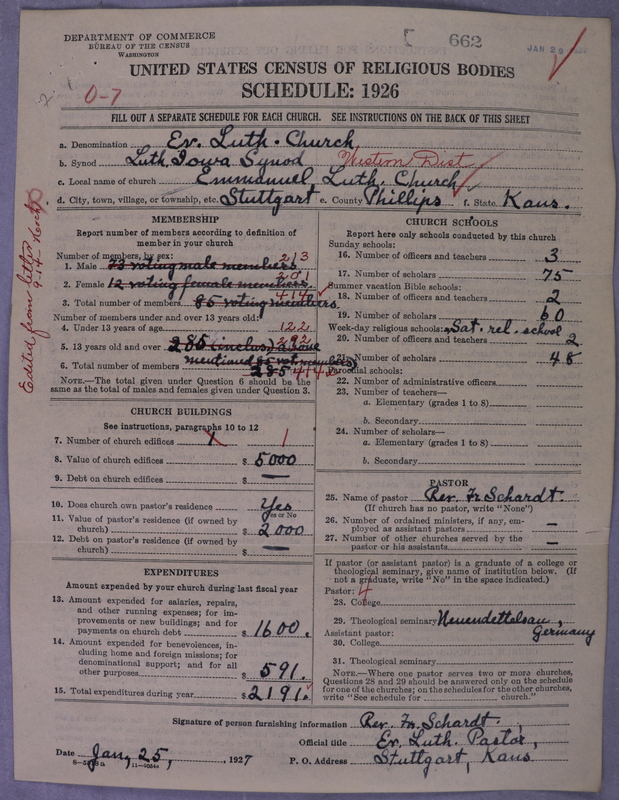 DEPARTMENT OF COMMERCE
BUREAU OF THE CENSUS
WASHINGTON
662
JAN 29
UNITED STATES CENSUS OF RELIGIOUS BODIES
SCHEDULE: 1926
0-7
FILL OUT A SEPARATE SCHEDULE FOR EACH CHURCH. SEE INSTRUCTIONS ON THE BACK OF THIS SHEET
a. Denomination Ev. Luth. Church
b. Synod Luth. Iowa Synod Western Dist
c. Local name of church Emmanuel Luth. Church
d. City, town, village, or township, etc. Stuttgart e. County Phillips f. State Kans.
Edited from letter
MEMBERSHIP
Report number of members according to definition of
member in your church
Number of members, by sex:
1. Male 73 voting male members 213
2. Female 12 voting female members 201
3. Total number of members 85 voting members 414
Number of members under and over 13 years old:
4. Under 13 years of age 122
5. 13 years old and over 285 (inclus) above 292
mentioned 85 vot. members)
6. Total number of members 285 414
NOTE.—The total given under Question 6 should be the
same as the total of males and females given under Question 3.
CHURCH BUILDINGS
See instructions, paragraphs 10 to 12
7. Number of church edifices 1
8. Value of church edifices $ 5000
9. Debt on church edifices $ —
10. Does church own pastor's residence Yes
Yes or No
11. Value of pastor's residence (if owned by
church) $ 2000
12. Debt on pastor's residence (if owned by
church) $ —
EXPENDITURES
Amount expended by your church during last fiscal year
13. Amount expended for salaries, repairs,
and other running expenses; for im-
provements or new buildings; and for
payments on church debt $ 1600.
14. Amount expended for benevolences, in-
cluding home and foreign missions; for
denominational support; and for all
other purposes $ 591.
15. Total expenditures during year $ 2191.
CHURCH SCHOOLS
Report here only schools conducted by this church
Sunday schools:
16. Number of officers and teachers 3
17. Number of scholars 75
Summer vacation Bible schools:
18. Number of officers and teachers 2
19. Number of scholars 60
Week-day religious schools: Sat. rel. school
20. Number of officers and teachers 2
21. Number of scholars 48
Parochial schools:
22. Number of administrative officers
23. Number of teachers—
a. Elementary (grades 1 to 8)
b. Secondary
24. Number of scholars—
a. Elementary (grades 1 to 8)
b. Secondary
PASTOR
25. Name of pastor Rev. Fr. Schardt.
(If church has no pastor, write "None")
26. Number of ordained ministers, if any, em-
ployed as assistant pastors —
27. Number of other churches served by the
pastor or his assistants —
If pastor (or assistant pastor) is a graduate of a college or
theological seminary, give name of institution below. (If
not a graduate, write "No" in the space indicated.)
Pastor: 4
28. College
29. Theological seminary Neuendettelsau,
Germany
Assistant pastor:
30. College
31. Theological seminary
NOTE.—Where one pastor serves two or more churches,
Questions 28 and 29 should be answered only on the schedule
for one of the churches; on the schedules for the other churches,
write "See schedule for church."
Signature of person furnishing information Rev. Fr. Schardt.
Official title Ev. Luth. Pastor,
Date Jan, 25, , 1927 P. O. Address Stuttgart, Kans